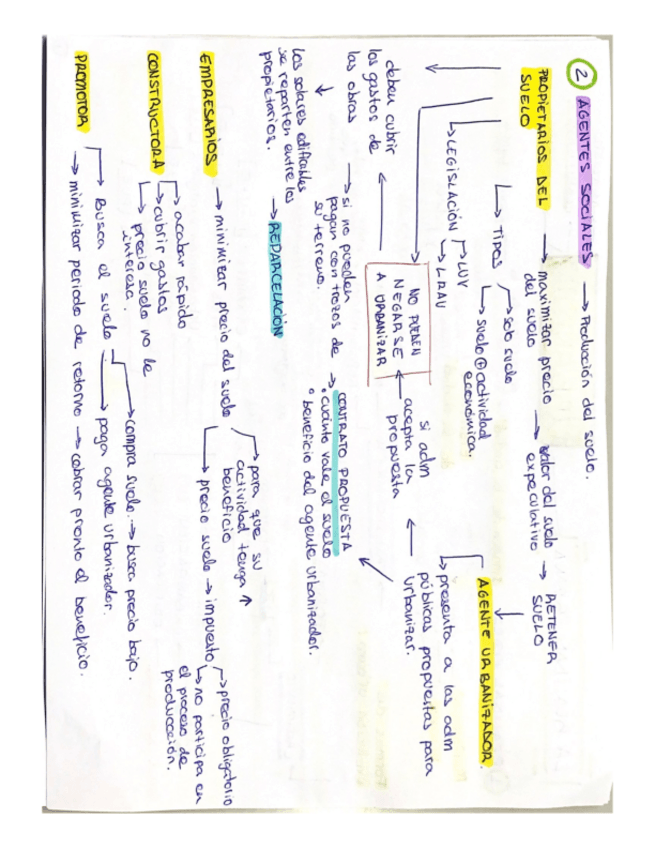 2 AGENTES SOCIALES → Producción del suelo.
PROPIETARIOS DEL
SUELO
→ maximizar precio
del suelo
→ valor del suelo
expeculativo
→ RETENER
SUELO
TIPOS
solo suelo
suelo ⊕ actividad
económica.
LEGISLACIÓN
LUV
LRAU
AGENTE URBANIZADOR.
presenta a las adm
públicas propuestas para
urbanizar.
si adm
acepta la
propuesta
NO PUEDEN
NEGARSE
A URBANIZAR
deben cubrir
los gastos de
las obras
→ si no pueden
pagan con trozos de
su terreno.
→ CONTRATO PROPUESTA
° cuánto vale el suelo
° beneficio del agente urbanizador.
los solares edificables
se reparten entre los
propietarios.
→ REPARCELACIÓN
EMPRESARIOS
→ minimizar precio del suelo
para que su
actividad tenga ↑
beneficio
precio suelo → impuesto
→ precio obligatorio
no participa en
el proceso de
producción.
CONSTRUCTORA
acabar rápido
cubrir gastos
precio suelo no le
interesa.
PROMOTOR
Busca el suelo
compra suelo → busca precio bajo.
paga agente urbanizador.
→ minimizar periodo de retorno → cobrar pronto el beneficio.